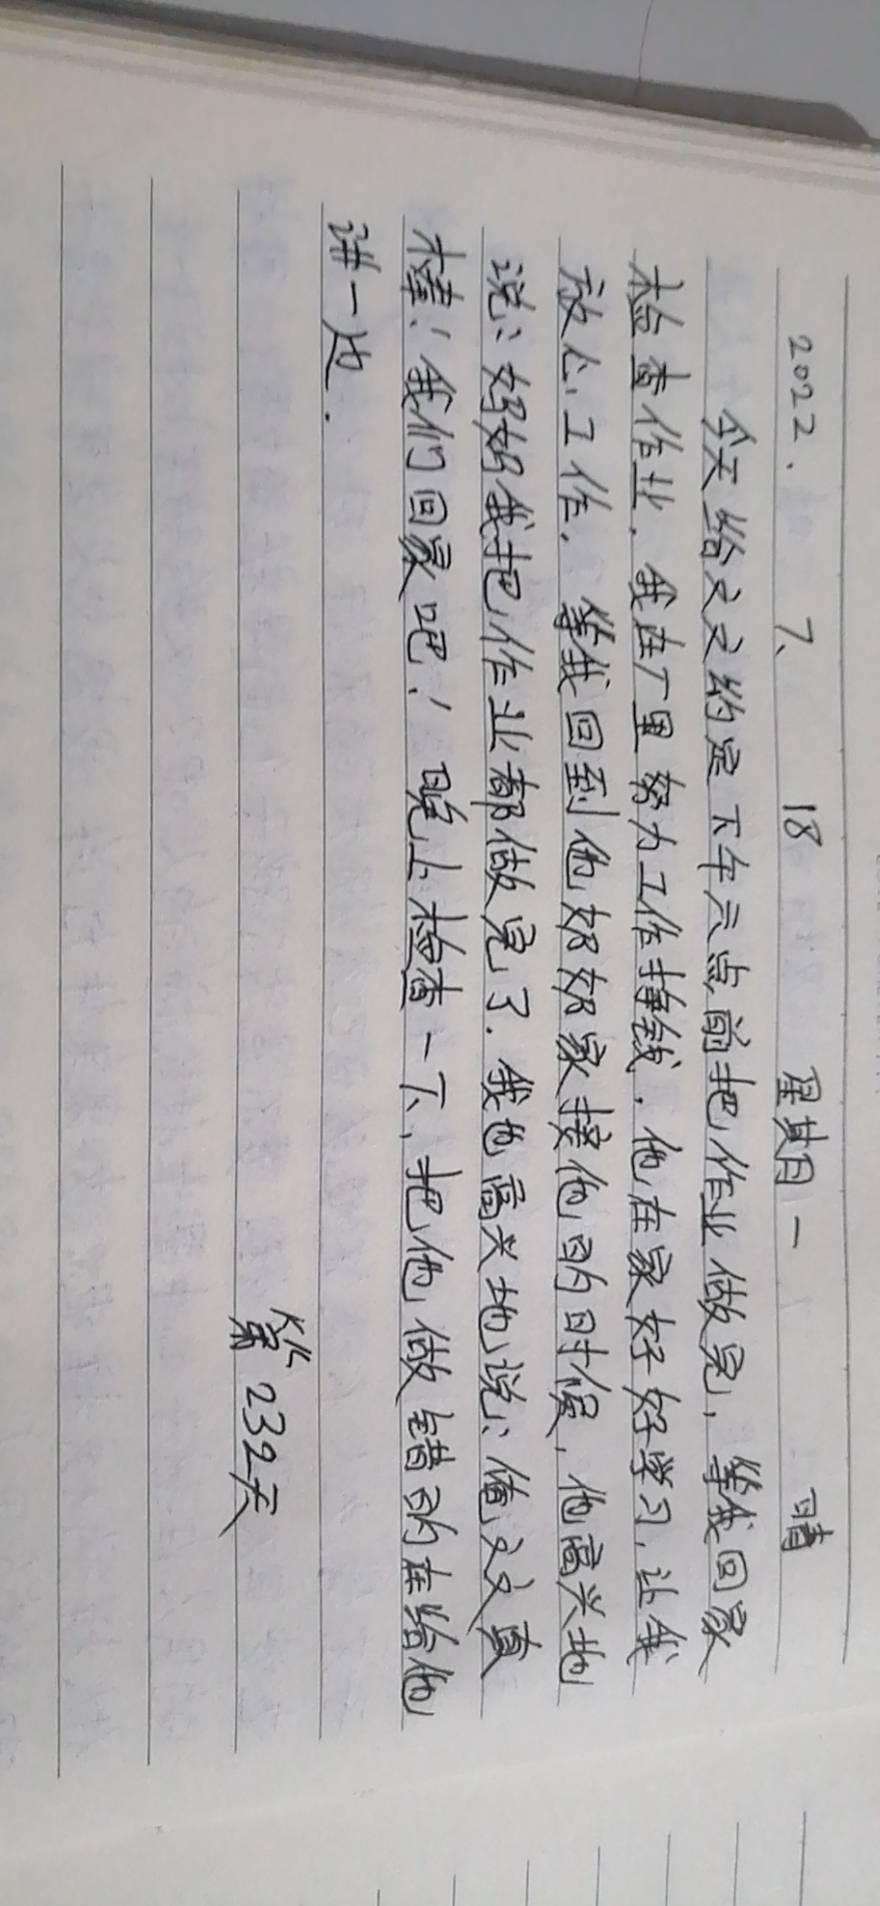 2022、 7、 18 星期一 晴
今天给文文约定下午六点前把作业做完，等我回家
检查作业．我在厂里努力工作挣钱．他在家好好学习，让我
放心工作．等我回到他奶奶家接他的时候，他高兴地
说：妈妈我把作业都做完了．我也高兴地说：俺文文真
棒！我们回家吧！晚上检查一下，把他做错的在给他
讲一边．
第232天